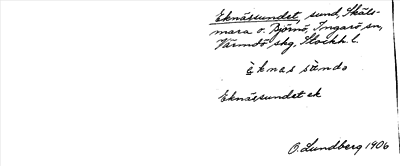 Eknäsundet, sund, Skäls-
mara o. Björnö, Ingarö sn,
Värmdö skg, Stockh. l.
èknas sùndə
Eknäsundet ek
O. Lundberg 1906